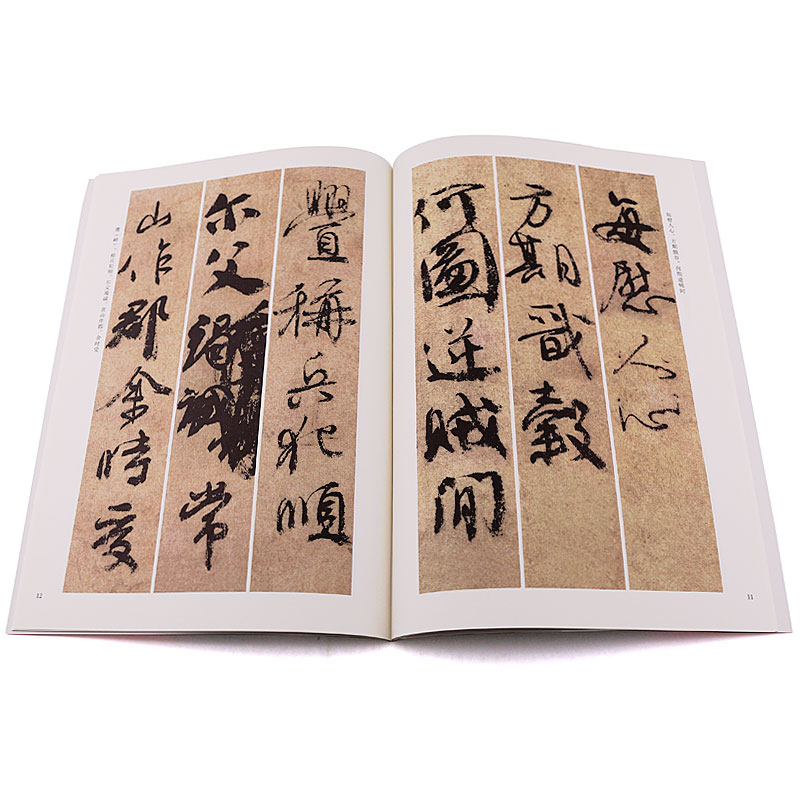 每慰人心
方期戩穀
何圖逆賊間
11
舋稱兵犯順
尔父竭誠常
山作郡余時受
12